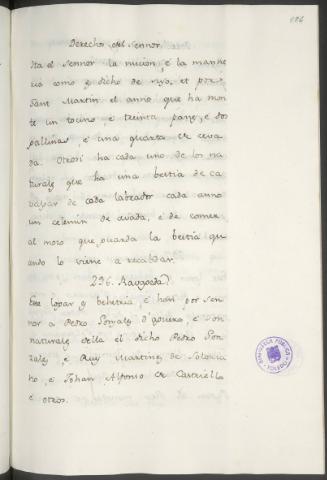 186
Derechos del Sennor
Ha el Sennor la nución, é la manne
ria como es dicho de suso, et por
Sant Martin el anno que ha mon
te un tocino, é treinta panes, é dos
gallinas, é una quarta de ceva
da. Otrosí ha cada uno de los na
turales que ha una bestia de ca
valgar de cada labrador cada anno
un celemin de cevada, é de comer
al mozo que guarda la bestia qu
ando lo viene a recabdar.
296.
Este logar es behetria, é han por Sen
nor a Pedro Gonzalez d'aguero, é son
naturales della el dicho Pedro Gon
zalez, é Ruy Martinez de Solorza
no, é Johan Alfonso de Castriella
é otros.
BIBLIOTECA PÚBLICA
TOLEDO